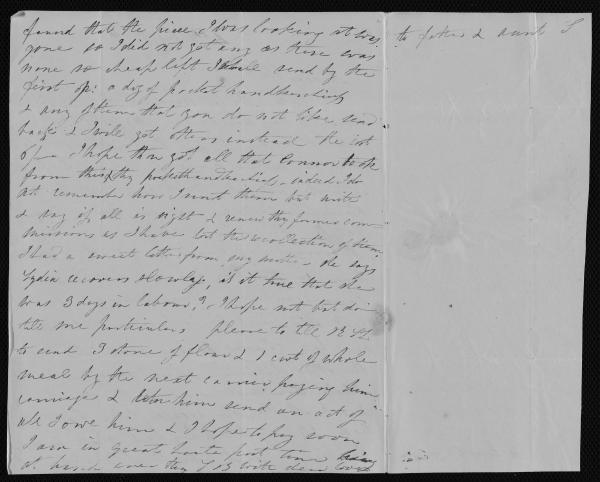 found that the piece I was looking at was
gone so I did not get any as there was
none so cheap left I shall send by the
first op: a doz of pocket handkerchiefs
& any of them that you do not like send
back & I will get others instead the cost
I hope thou got all that Connor took
from this & thy pockethandkerchiefs, indeed I do
not remember how I sent them but write
& say if all is right & renew thy former com
missions as I have lost the recollection of them
I had a sweet letter from my mother she says
Lydia recovers slowly, is it true that she
was 3 days in labour? I hope not but do
tell me particulars please to tell
to send 3 stone of flour & 1 cwt of whole
meal by the next carrier paying him
carriage & let him send an act of
all I owe him & I hope to pay soon
I am in great haste post time being
at hand ever thy with dear love
to father & aunt S